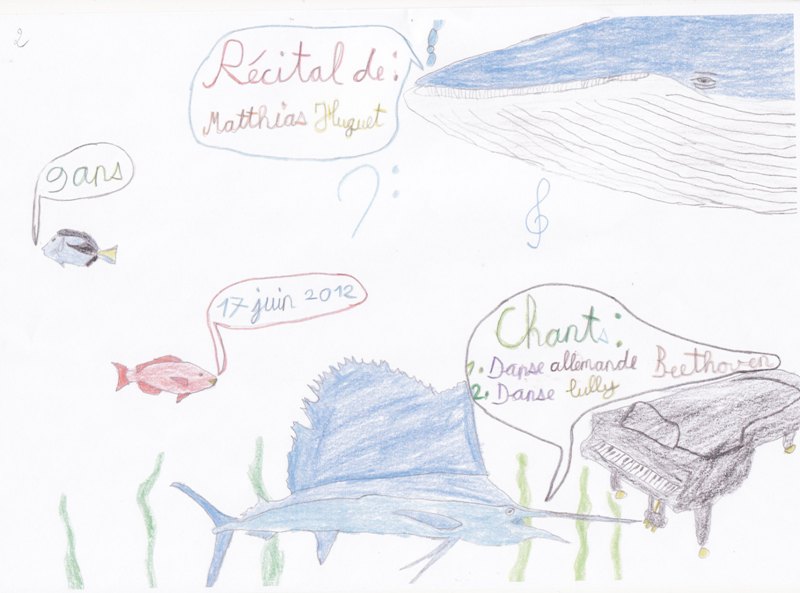 2
Récital de:
Matthias Huguet
9 ans
17 juin 2012
Chants:
1. Danse allemande Beethoven
2. Danse lully